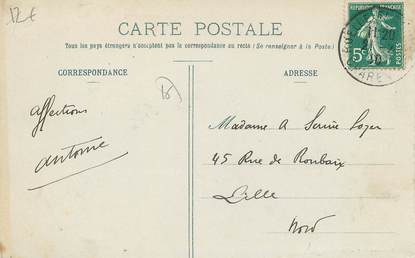 12€
CARTE POSTALE
Tous les pays étrangers n'acceptent pas la correspondance au recto (Se renseigner à la Poste)
CORRESPONDANCE
ADRESSE
RÉPUBLIQUE FRANÇAISE
5c
11-20
affections
antoine
Madame A
45 Rue de Roubaix
Lille
Nord